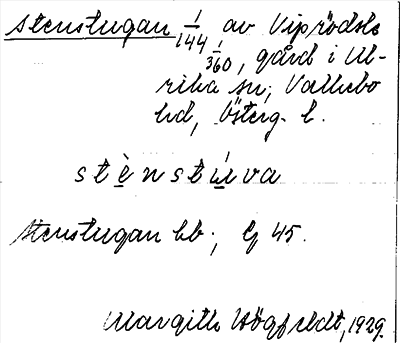 Stenstugan 1/144 av Viprödsle
1/360, gård i Ul-
rika sn, Vallebo
hd, Österg. l.
stènstu̇va
Stenstugan bb., Cg 45.
Margith Högfeldt, 1929.